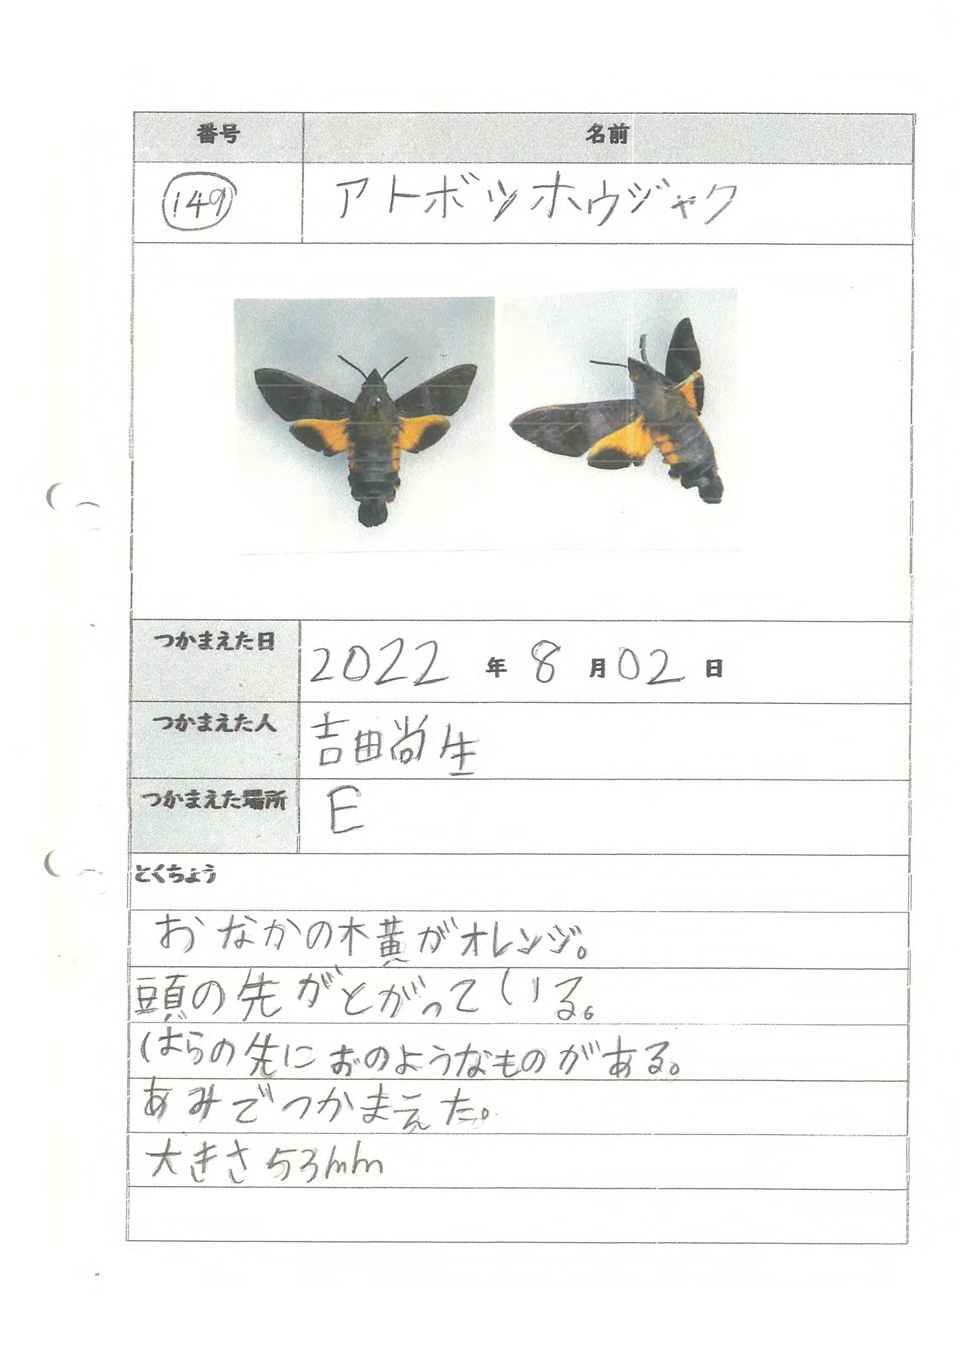 番号 名前
149 アトボツホウジャク
つかまえた日 2022 年 8 月 02 日
つかまえた人 吉田尚生
つかまえた場所 E
とくちょう
おなかの横がオレンジ。
頭の先がとがっている。
はらの先におのようなものがある。
あみでつかまえた。
大きさ53mm